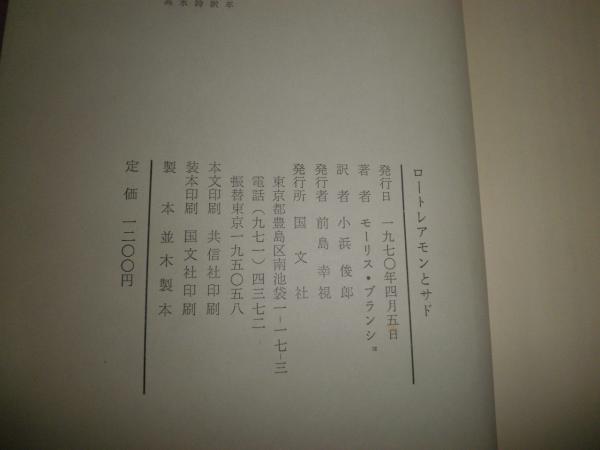 ロートレアモンとサド
発行日 一九七〇年四月五日
著者 モーリス・ブランショ
訳者 小浜俊郎
発行者 前島幸視
発行所 国文社
東京都豊島区南池袋一-一七-三
電話(九七一)四三七二
振替東京一九五〇五八
本文印刷 共信社印刷
装本印刷 国文社印刷
製本 並木製本
定価 一二〇〇円